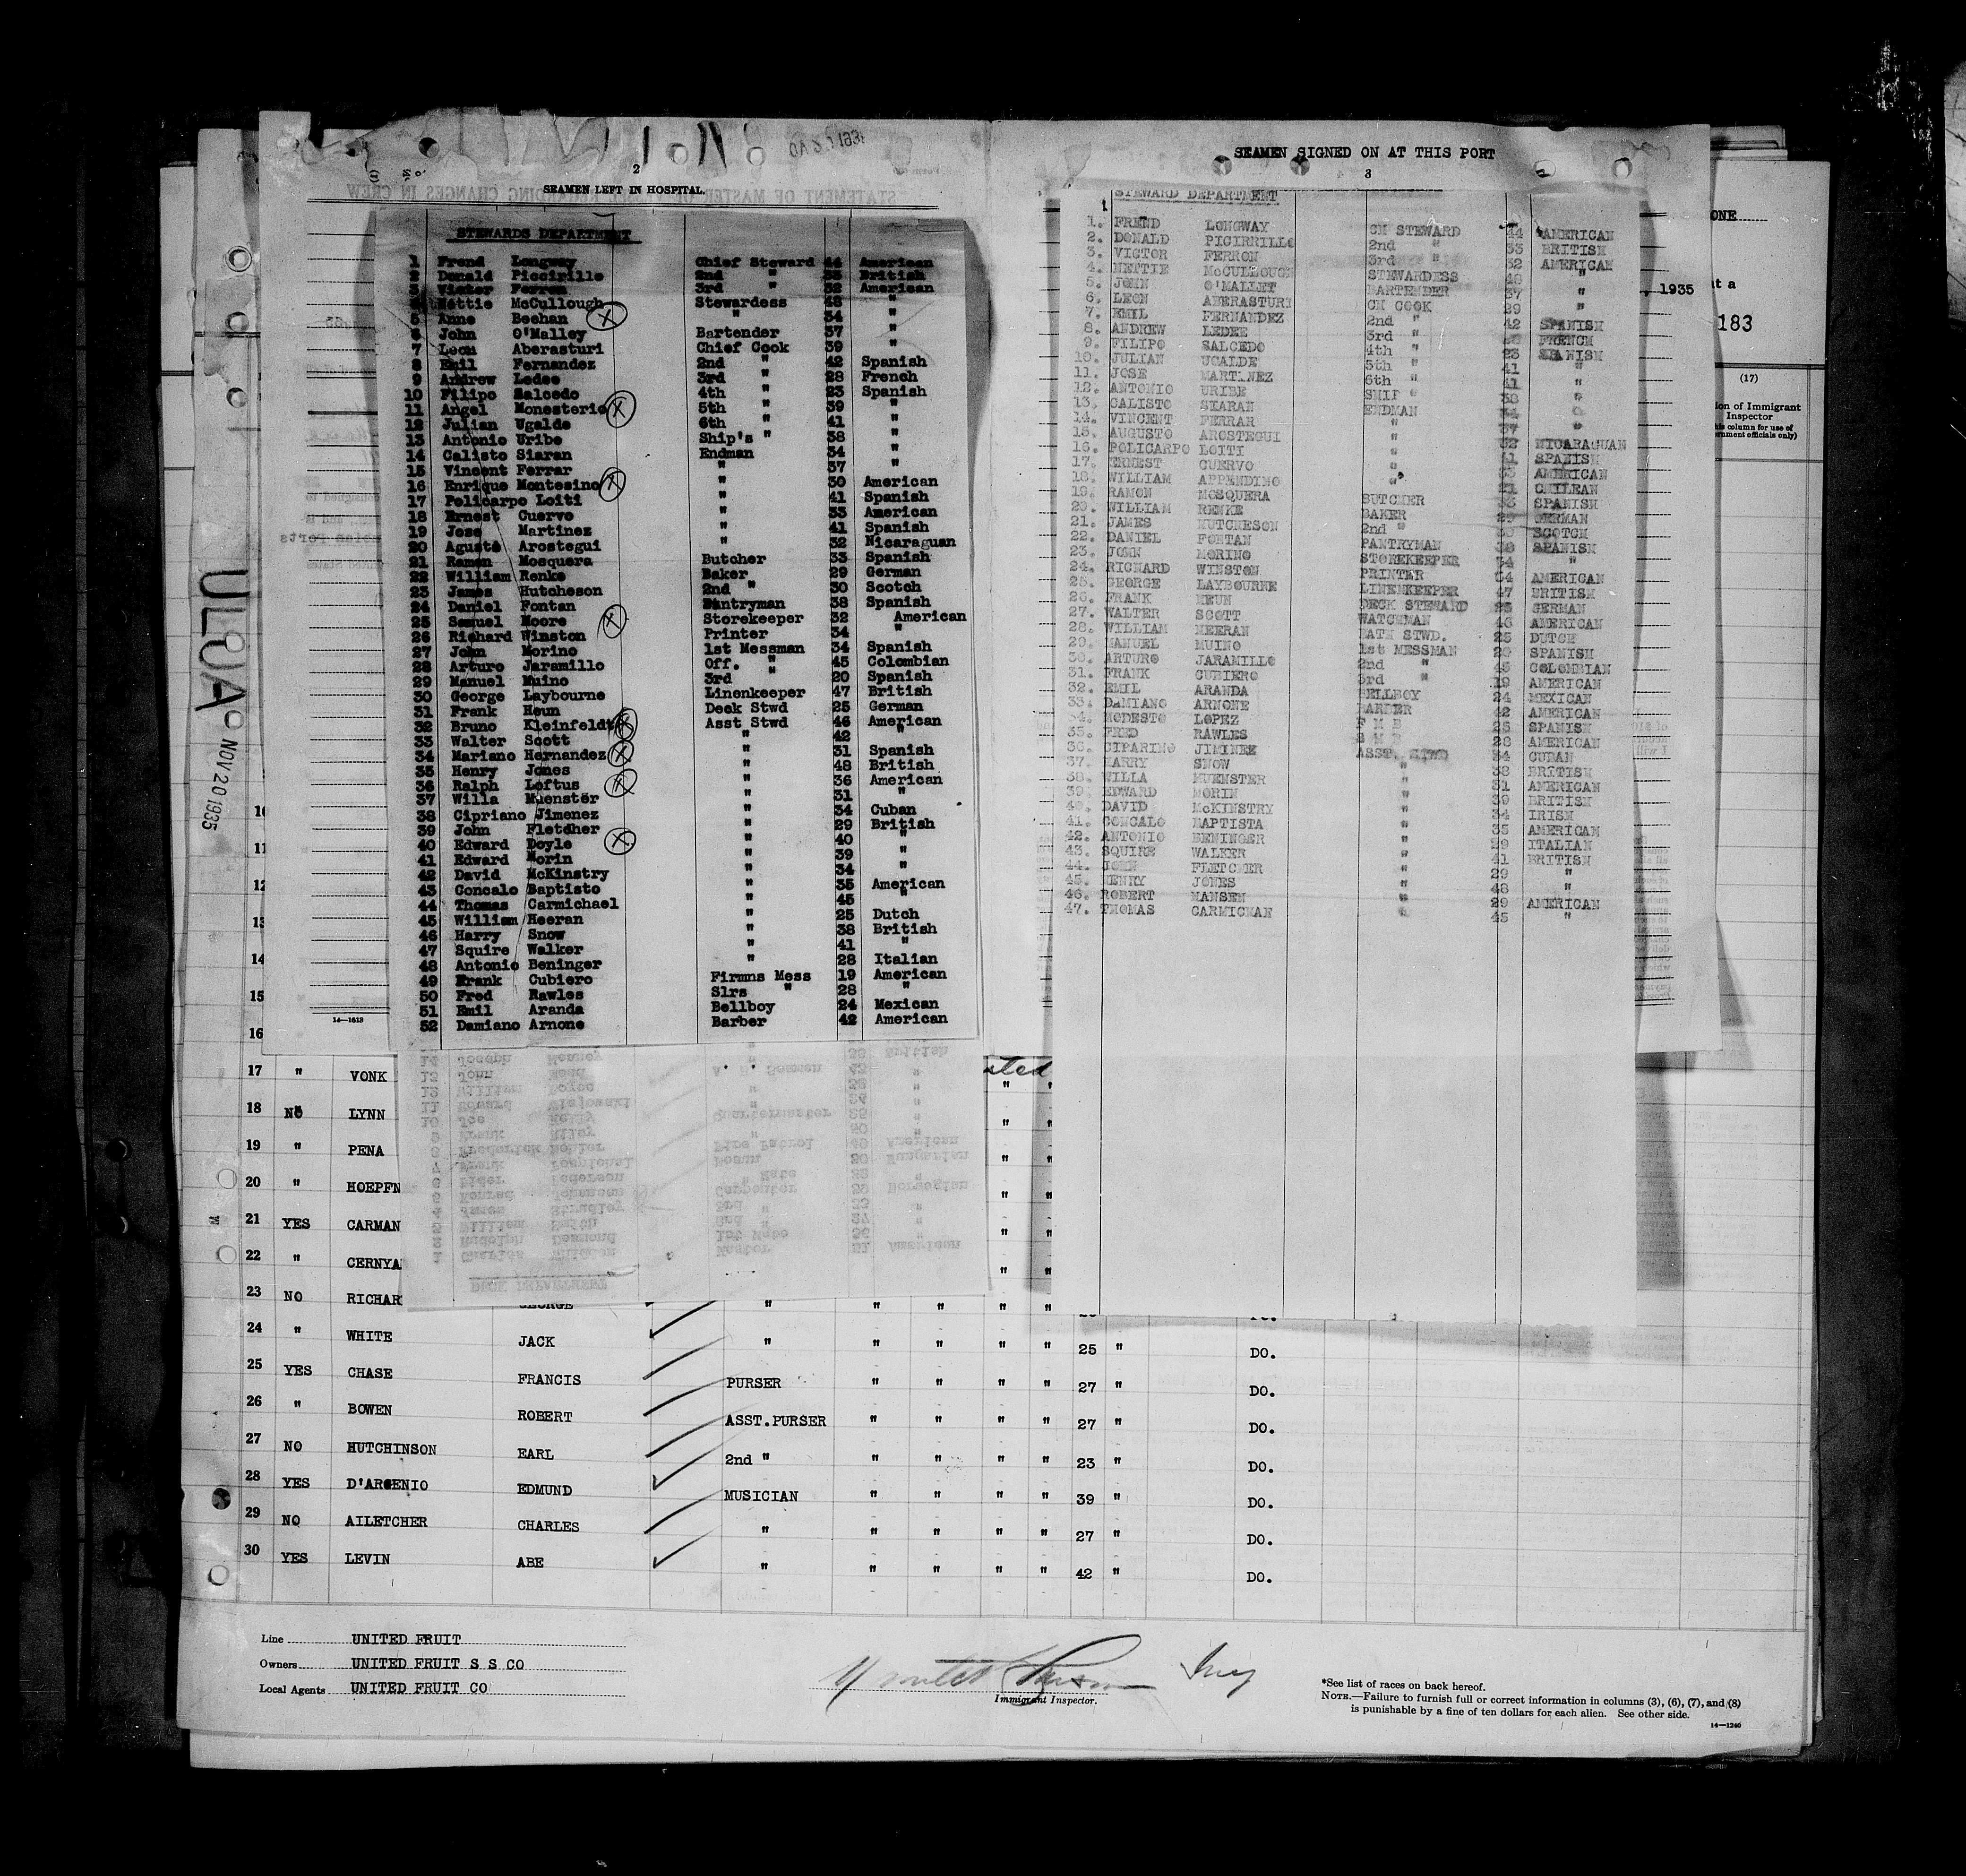 2
SEAMEN LEFT IN HOSPITAL.
STEWARDS DEPARTMENT
1 Frend Longway Chief Steward 44 American
2 Donald Piccirillo 2nd " 33 British
3 Victor Ferron 3rd " 32 American
4 Nettie McCullough Stewardess 48 "
5 Anne Beehan " 34 "
6 John O'Malley Bartender 37 "
7 Leon Aberasturi Chief Cook 39 "
8 Emil Fernandez 2nd " 42 Spanish
9 Andrew Ledee 3rd " 28 French
10 Filipo Salcedo 4th " 23 Spanish
11 Angel Monesterio 5th " 39 "
12 Julian Ugalde 6th " 41 "
13 Antonio Uribe Ship's " 38 "
14 Calisto Siaran Endman 34 "
15 Vincent Ferrar " 37 "
16 Enrique Montesino " 30 American
17 Policarpo Loiti " 41 Spanish
18 Ernest Cuervo " 33 American
19 Jose Martinez " 41 Spanish
20 Agusto Arostegui " 32 Nicaraguan
21 Ramon Mosquera Butcher 33 Spanish
22 William Renke Baker 29 German
23 James Hutcheson 2nd " 30 Scotch
24 Daniel Fontan Pantryman 38 Spanish
25 Samuel Moore Storekeeper 32 American
26 Richard Winston Printer 34 "
27 John Morino 1st Messman 34 Spanish
28 Arturo Jaramillo Off. " 45 Colombian
29 Manuel Muino 3rd " 20 Spanish
30 George Laybourne Linenkeeper 47 British
31 Frank Heun Deck Stwd 25 German
32 Bruno Kleinfeldt Asst Stwd 46 American
33 Walter Scott " 42 "
34 Mariano Hernandez " 31 Spanish
35 Henry Jones " 48 British
36 Ralph Loftus " 36 American
37 Willa Muenster " 31 "
38 Cipriano Jimenez " 34 Cuban
39 John Fletcher " 29 British
40 Edward Doyle " 40 "
41 Edward Morin " 39 "
42 David McKinstry " 34 "
43 Goncalo Baptisto " 35 American
44 Thomas Carmichael " 45 "
45 William Heeran " 25 Dutch
46 Harry Snow " 38 British
47 Squire Walker " 41 "
48 Antonio Beninger " 28 Italian
49 Frank Cubiero Firmns Mess 19 American
50 Fred Rawles Slrs " 28 "
51 Emil Aranda Bellboy 24 Mexican
52 Damiano Arnone Barber 42 American
14—1613
SEAMEN SIGNED ON AT THIS PORT
3
STEWARD DEPARTMENT
1. FREND LONGWAY CH STEWARD 44 AMERICAN
2. DONALD PICIRRILLO 2nd " 33 BRITISH
3. VICTOR FERRON 3rd " 32 AMERICAN
4. NETTIE McCULLOUGH STEWARDESS 48 "
5. JOHN O'MALLET BARTENDER 37 "
6. LEON ABERASTURI CH COOK 29 "
7. EMIL FERNANDEZ 2nd " 42 SPANISH
8. ANDREW LEDEE 3rd " FRENCH
9. FILIPO SALCEDO 4th " 23 SPANISH
10. JULIAN UGALDE 5th " 41 "
11. JOSE MARTINEZ 6th " 41 "
12. ANTONIO URIBE SHIP " 38 "
13. CALISTO SIARAN ENDMAN 34 "
14. VINCENT FERRAR " 37 "
15. AUGUSTO AROSTEGUI " 32 NICARAGUAN
16. POLICARPO LOITI " 41 SPANISH
17. ERNEST CUERVO " 33 AMERICAN
18. WILLIAM APPENDINO " 21 CHILEAN
19. RAMON MOSQUERA BUTCHER 33 SPANISH
20. WILLIAM RENKE BAKER 29 GERMAN
21. JAMES HUTCHESON 2nd " 30 SCOTCH
22. DANIEL FONTAN PANTRYMAN 38 SPANISH
23. JOHN MORINO STOREKEEPER 34 "
24. RICHARD WINSTON PRINTER 34 AMERICAN
25. GEORGE LAYBOURNE LINENKEEPER 47 BRITISH
26. FRANK HEUN DECK STEWARD 25 GERMAN
27. WALTER SCOTT WATCHMAN 46 AMERICAN
28. WILLIAM HEERAN BATH STWD. 25 DUTCH
29. MANUEL MUINO 1st MESSMAN 20 SPANISH
30. ARTURO JARAMILLO 2nd " 45 COLOMBIAN
31. FRANK CUBIERO 3rd " 19 AMERICAN
32. EMIL ARANDA BELLBOY 24 MEXICAN
33. DAMIANO ARNONE BARBER 42 AMERICAN
34. MODESTO LOPEZ F M B 25 SPANISH
35. FRED RAWLES S M B 28 AMERICAN
36. CIPARINO JIMINEE ASST. STWD 34 CUBAN
37. HARRY SNOW " 38 BRITISH
38. WILLA MUENSTER " 31 AMERICAN
39. EDWARD MORIN " 39 BRITISH
40. DAVID McKINSTRY " 34 IRISH
41. GONCALO BAPTISTA " 35 AMERICAN
42. ANTONIO BENINGER " 29 ITALIAN
43. SQUIRE WALKER " 41 BRITISH
44. JOHN FLETCHER " 29 "
45. HENRY JONES " 48 "
46. ROBERT HANSEN " 29 AMERICAN
47. THOMAS CARMICHAE " 45 "
ONE
, 1935
at a
183
(17)
ion of Immigrant
Inspector
column for use of
ernment officials only)
ULUA
NOV 20 1935
10
11
12
13
14
15
16
17 " VONK
18 NO LYNN
19 " PENA
20 " HOEPFN
21 YES CARMAN
22 " CERNYA
23 NO RICHAR GEORGE " " " " "
24 " WHITE JACK " " " " " 25 " DO.
25 YES CHASE FRANCIS PURSER " " " " 27 " DO.
26 " BOWEN ROBERT ASST.PURSER " " " " 27 " DO.
27 NO HUTCHINSON EARL 2nd " " " " " 23 " DO.
28 YES D'ARGENIO EDMUND MUSICIAN " " " " 39 " DO.
29 NO AILETCHER CHARLES " " " " " 27 " DO.
30 YES LEVIN ABE " " " " " 42 " DO.
Line UNITED FRUIT
Owners UNITED FRUIT S S CO
Local Agents UNITED FRUIT CO
Immigrant Inspector.
*See list of races on back hereof.
NOTE.—Failure to furnish full or correct information in columns (3), (6), (7), and (8)
is punishable by a fine of ten dollars for each alien. See other side.
14—1240